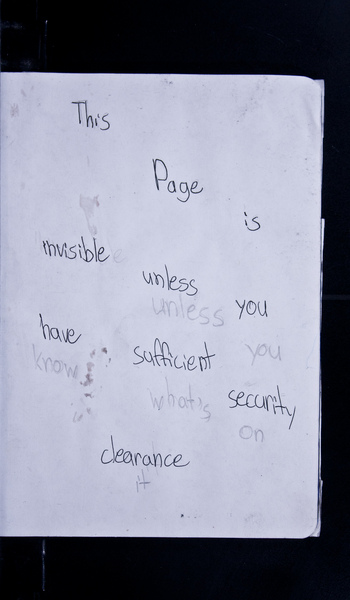 This
Page
is
invisible
unless
unless you
have
sufficient you
know
what's security
on
clearance
it